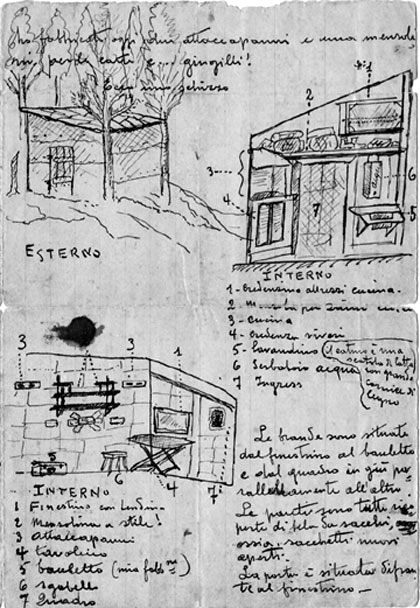 Ho fabbricato oggi due attaccapanni e una mensola
Ecco uno schizzo
ESTERNO
1
2
3
4
5
6
7
INTERNO
1 - Credenzino attrezzi cucina.
2
3 - Cucina
4 - credenza viveri
5 - Lavandino (il catino è una scatola di latta con grande cornice di legno)
6 Serbatoio acqua
7 Ingresso
3
3
1
2
5
6
4
7
INTERNO
1 Finestrino con tendina
2 Mensolina a stile!
3 attaccapanni
4 tavolino
5 bauletto (mia fabb.ne)
6 sgabello
7 Quadro
Le brande sono situate
dal finestrino al bauletto
e dal quadro in giù pa-
rallelamente all'altro.
Le pareti sono tutte
perte di tela da sacchi,
ossia, sacchetti nuovi
aperti.
La porta è situata difron
te al finestrino -